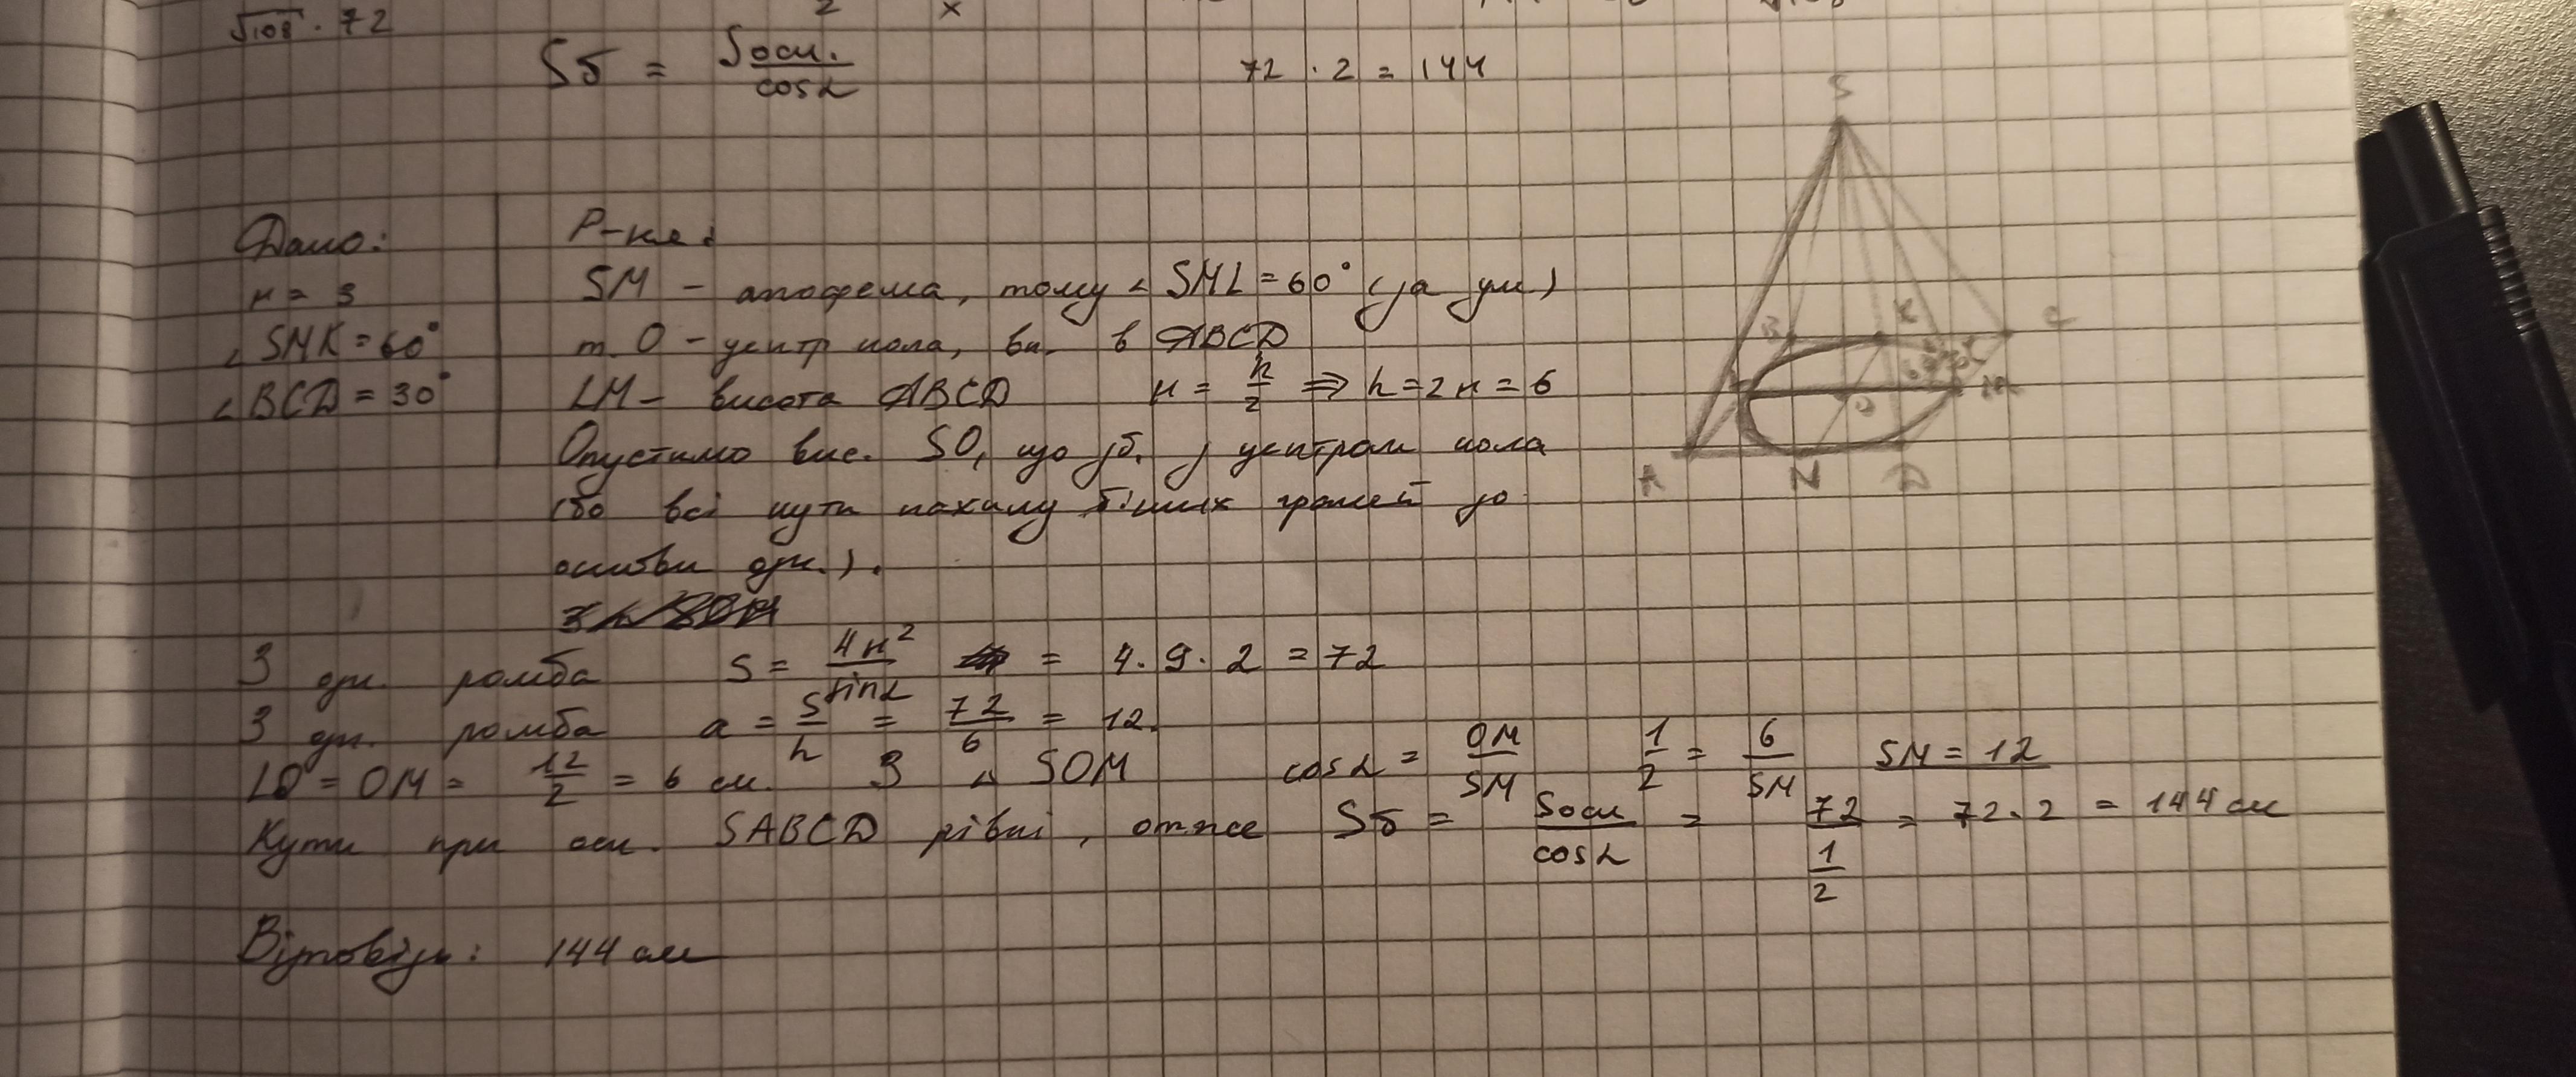 √108 · 72
Sб = Sосн. / cosα
72 · 2 = 144
Дано:
r = 3
∠ SMK = 60°
∠ BCD = 30°
Р-ня:
SM – апофема, тому ∠ SML = 60° (за ум)
т. O – центр кола, вп. в ABCD
LM – висота ABCD r = h/2 ⇒ h = 2r = 6
Опустимо вис. SO, що зб. з центром кола
(бо всі кути нахилу бічних граней до
основи одн.).
З одн. ромба S = 4r²/sinα = 4 · 9 · 2 = 72
З одн. ромба a = S/h = 72/6 = 12.
LO = OM = 12/2 = 6 см. З △ SOM cosα = OM/SM 1/2 = 6/SM SM = 12
Кути при осн. SABCD рівні, отже Sб = Sосн/cosα = 72/(1/2) = 72·2 = 144 см
Відповідь: 144 см
S
B K C
L O M
A N D